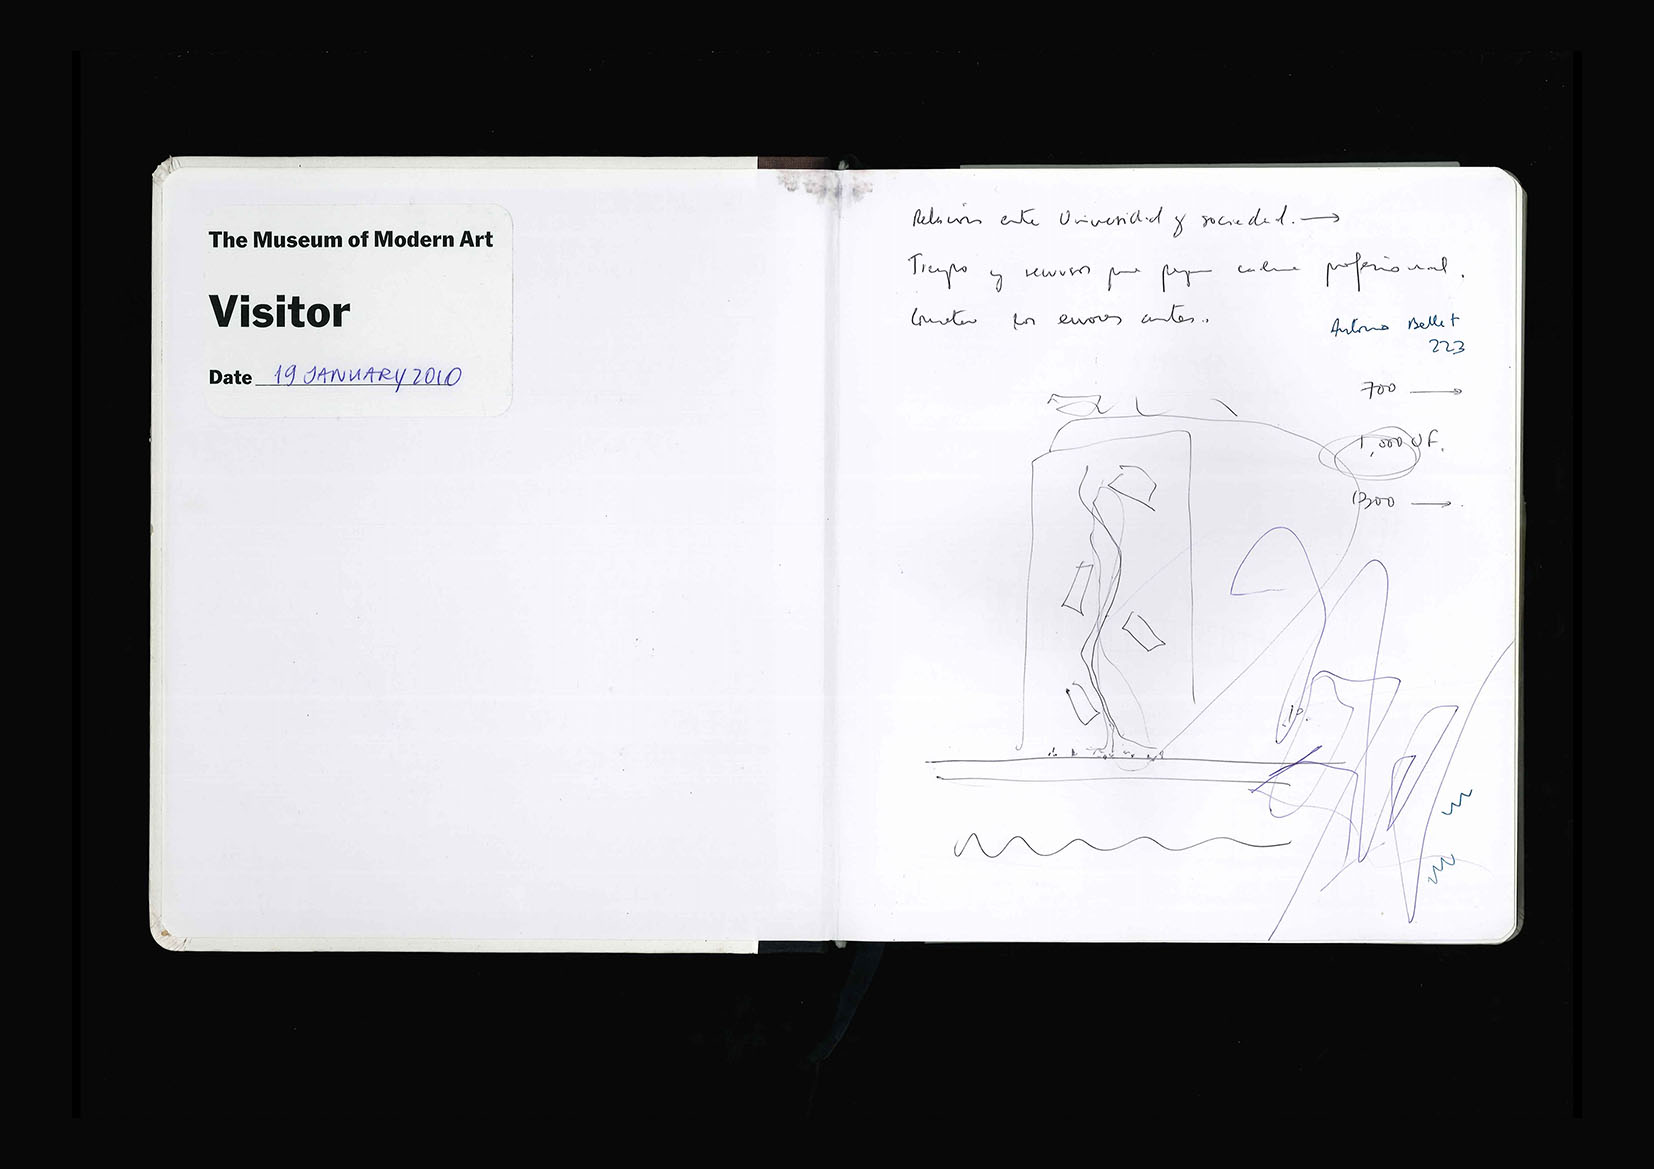 The Museum of Modern Art
Visitor
Date 19 JANUARY 2010
Relación entre Universidad y sociedad. →
Tiempo y recursos para profesional.
Cometer los errores antes..
Antonio Bellet
223
700 →
1,000 UF.
1300 →